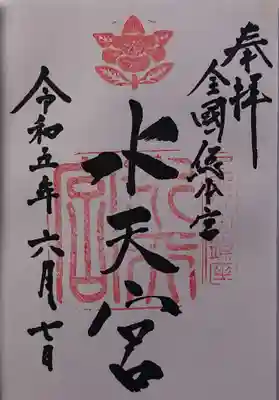 奉拝
全國総本宮
水天宮
令和五年六月七日